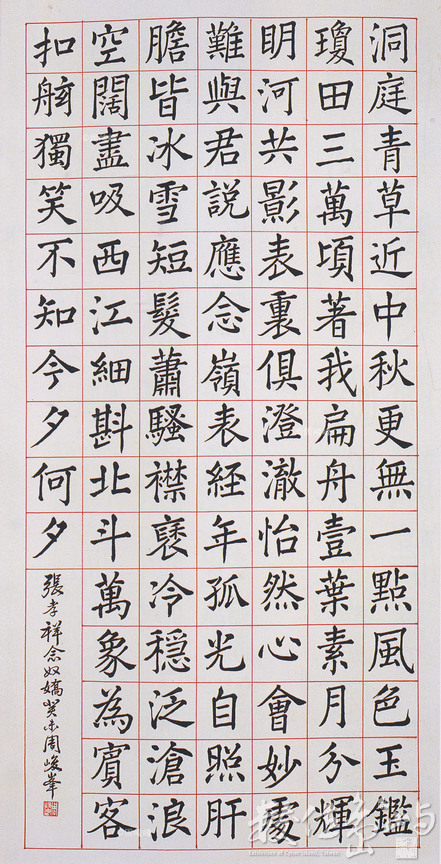 洞庭青草近中秋更無一點風色玉鑑
瓊田三萬頃著我扁舟壹葉素月分輝
明河共影表裏俱澄澈怡然心會妙處
難與君説應念嶺表経年孤光自照肝
膽皆冰雪短髮蕭騷襟褎冷穩泛滄浪
空闊盡吸西江細斟北斗萬象為賓客
扣舷獨笑不知今夕何夕
張孝祥念奴嬌癸未周峻峯